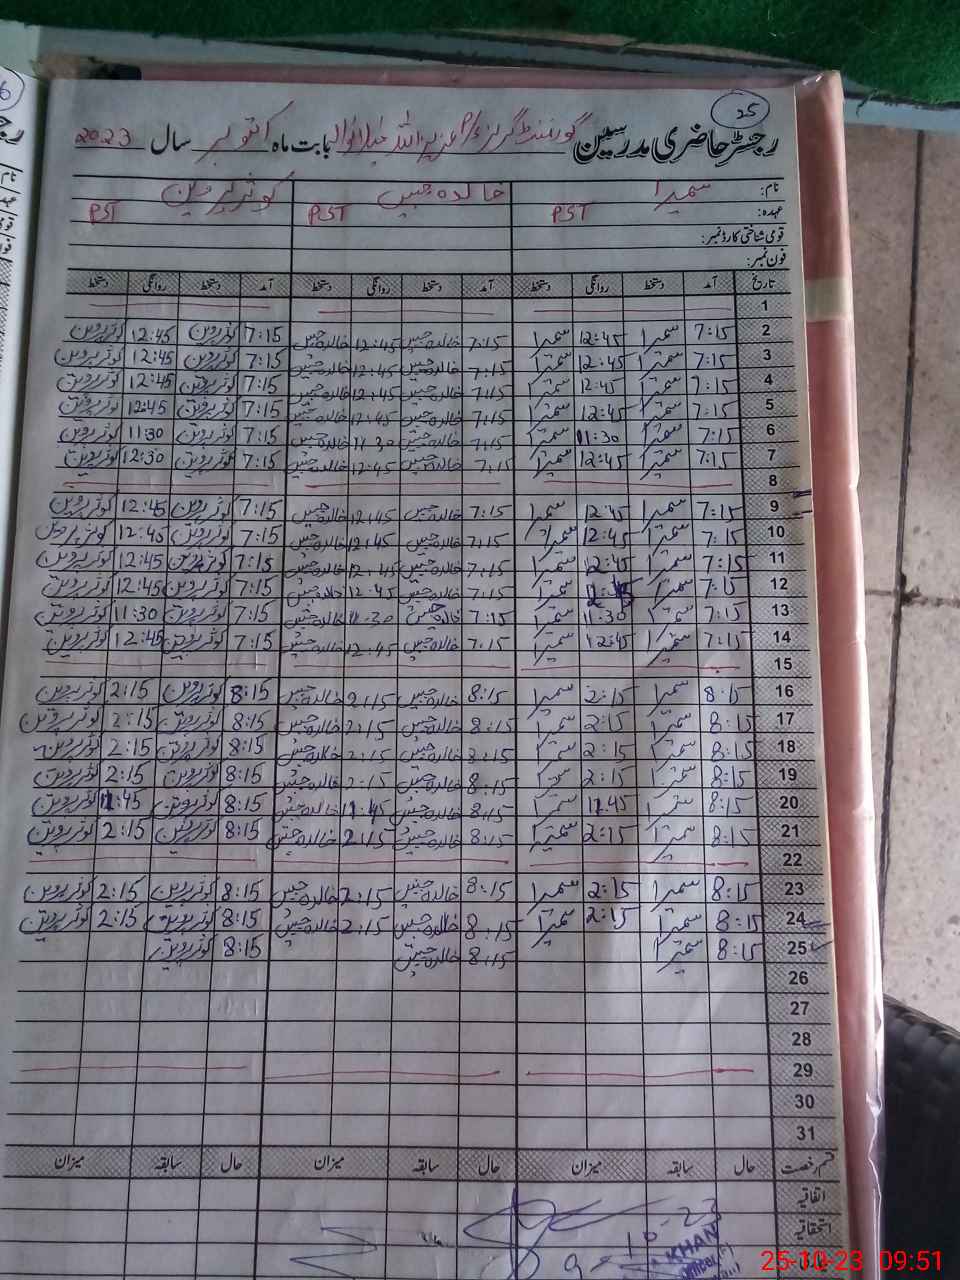 25
رجسٹر حاضری مدرسین گورنمنٹ گرلز بابت ماہ اکتوبر سال 2023
نام: سمیرا خالدہ جبیں کوثر پروین
عہدہ: PST PST PST
قومی شناختی کارڈ نمبر:
فون نمبر:
تاریخ آمد دستخط روانگی دستخط آمد دستخط روانگی دستخط آمد دستخط روانگی دستخط
1
2 7:15 سمیرا 12:45 سمیرا 7:15 خالدہ جبیں 12:45 خالدہ جبیں 7:15 کوثر پروین 12:45 کوثر پروین
3 7:15 سمیرا 12:45 سمیرا 7:15 خالدہ جبیں 12:45 خالدہ جبیں 7:15 کوثر پروین 12:45 کوثر پروین
4 7:15 سمیرا 12:45 سمیرا 7:15 خالدہ جبیں 12:45 خالدہ جبیں 7:15 کوثر پروین 12:45 کوثر پروین
5 7:15 سمیرا 12:45 سمیرا 7:15 خالدہ جبیں 12:45 خالدہ جبیں 7:15 کوثر پروین 12:45 کوثر پروین
6 7:15 سمیرا 11:30 سمیرا 7:15 خالدہ جبیں 11:30 خالدہ جبیں 7:15 کوثر پروین 11:30 کوثر پروین
7 7:15 سمیرا 12:45 سمیرا 7:15 خالدہ جبیں 12:45 خالدہ جبیں 7:15 کوثر پروین 12:30 کوثر پروین
8
9 7:15 سمیرا 12:45 سمیرا 7:15 خالدہ جبیں 12:45 خالدہ جبیں 7:15 کوثر پروین 12:45 کوثر پروین
10 7:15 سمیرا 12:45 سمیرا 7:15 خالدہ جبیں 12:45 خالدہ جبیں 7:15 کوثر پروین 12:45 کوثر پروین
11 7:15 سمیرا 12:45 سمیرا 7:15 خالدہ جبیں 12:45 خالدہ جبیں 7:15 کوثر پروین 12:45 کوثر پروین
12 7:15 سمیرا سمیرا 7:15 خالدہ جبیں 12:45 خالدہ جبیں 7:15 کوثر پروین 12:45 کوثر پروین
13 7:15 سمیرا 11:30 سمیرا 7:15 خالدہ جبیں 11:30 خالدہ جبیں 7:15 کوثر پروین 11:30 کوثر پروین
14 7:15 سمیرا 12:45 سمیرا 7:15 خالدہ جبیں 12:45 خالدہ جبیں 7:15 کوثر پروین 12:45 کوثر پروین
15
16 8:15 سمیرا 2:15 سمیرا 8:15 خالدہ جبیں 2:15 خالدہ جبیں 8:15 کوثر پروین 2:15 کوثر پروین
17 8:15 سمیرا 2:15 سمیرا 8:15 خالدہ جبیں 2:15 خالدہ جبیں 8:15 کوثر پروین 2:15 کوثر پروین
18 8:15 سمیرا 2:15 سمیرا 8:15 خالدہ جبیں 2:15 خالدہ جبیں 8:15 کوثر پروین 2:15 کوثر پروین
19 8:15 سمیرا 2:15 سمیرا 8:15 خالدہ جبیں 2:15 خالدہ جبیں 8:15 کوثر پروین 2:15 کوثر پروین
20 8:15 سمیرا 11:45 سمیرا 8:15 خالدہ جبیں 11:45 خالدہ جبیں 8:15 کوثر پروین 11:45 کوثر پروین
21 8:15 سمیرا 2:15 سمیرا 8:15 خالدہ جبیں 2:15 خالدہ جبیں 8:15 کوثر پروین 2:15 کوثر پروین
22
23 8:15 سمیرا 2:15 سمیرا 8:15 خالدہ جبیں 2:15 خالدہ جبیں 8:15 کوثر پروین 2:15 کوثر پروین
24 8:15 سمیرا 2:15 سمیرا 8:15 خالدہ جبیں 2:15 خالدہ جبیں 8:15 کوثر پروین 2:15 کوثر پروین
25 8:15 سمیرا 8:15 خالدہ جبیں 8:15 کوثر پروین
26
27
28
29
30
31
قسم رخصت حال سابقہ میزان حال سابقہ میزان حال سابقہ میزان
اتفاقیہ
استحقاقیہ
KHAN
25-10-23 09:51